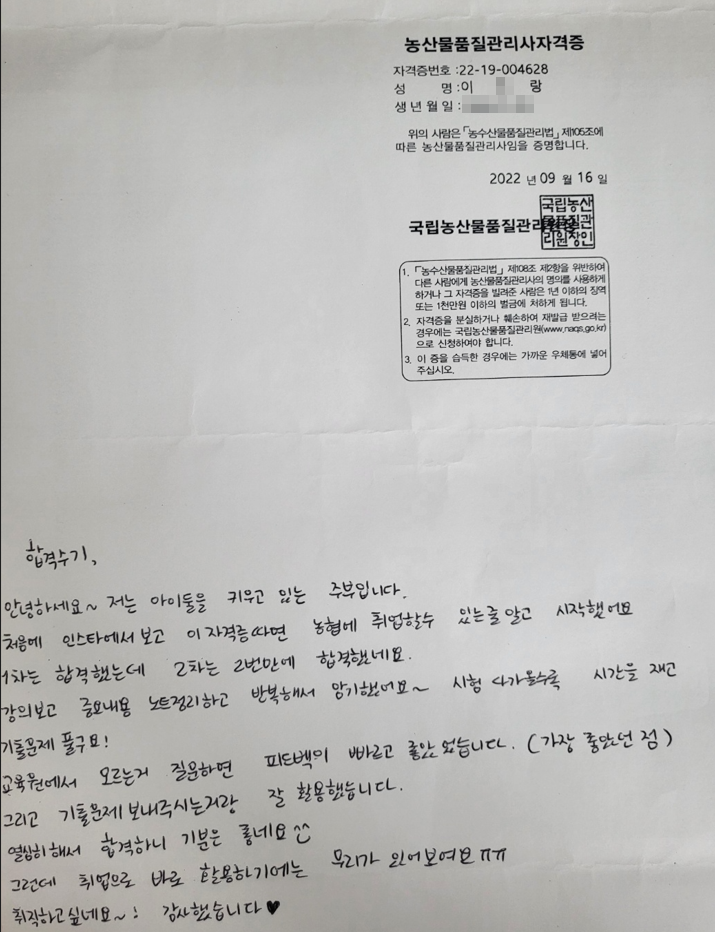 농산물품질관리사자격증
자격증번호 :22-19-004628
성 명 :이 랑
생년월일 :
위의 사람은 「농수산물품질관리법」 제105조에
따른 농산물품질관리사임을 증명합니다.
2022 년 09 월 16 일
국립농산물품질관리
국립농산
물품질관
리원장인
1. 「농수산물품질관리법」 제108조 제2항을 위반하여
다른 사람에게 농산물품질관리사의 명의를 사용하게
하거나 그 자격증을 빌려준 사람은 1년 이하의 징역
또는 1천만원 이하의 벌금에 처하게 됩니다.
2. 자격증을 분실하거나 훼손하여 재발급 받으려는
경우에는 국립농산물품질관리원(www.naqs.go.kr)
으로 신청하여야 합니다.
3. 이 증을 습득한 경우에는 가까운 우체통에 넣어
주십시오.
합격수기,
안녕하세요~ 저는 아이둘을 키우고 있는 주부입니다.
처음에 인스타에서보고 이 자격증따면 농협에 취업할수 있는줄알고 시작했어요
1차는 합격했는데 2차는 2번만에 합격했네요.
강의보고 중요내용 노트정리하고 반복해서 암기했어요~ 시험 다가올수록 시간을 재고
기출문제 풀구요!
교육원에서 모르는거 질문하면 피드백이 빠르고 좋았었습니다. (가장 좋았던 점)
그리고 기출문제보내주시는거랑 잘 활용했습니다.
열심히해서 합격하니 기분은 좋네요^^
그런데 취업으로 바로 활용하기에는 무리가 있어보여요ㅠㅠ
취직하고싶네요~! 감사했습니다♥